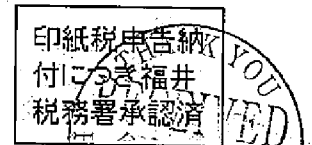 印紙税申告納
付につき福井
税務署承認済
THANK YOU